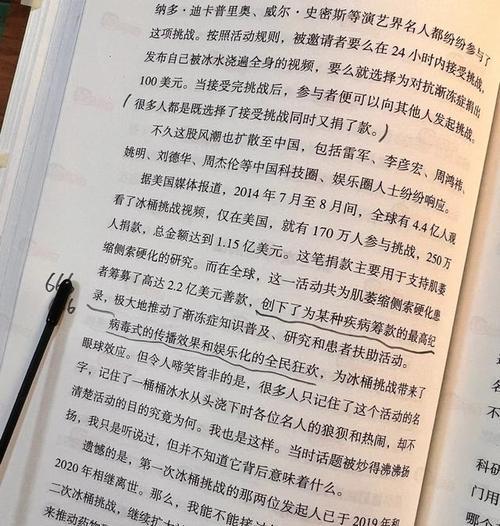 纳多·迪卡普里奥、威尔·史密斯等演艺界名人都纷纷参与了
这项挑战。按照活动规则，被邀请者要么在 24 小时内接受挑战，
发布自己被冰水浇遍全身的视频，要么就选择为对抗渐冻症捐出
100 美元。当接受完挑战后，参与者便可以向其他人发起挑战。
（很多人都是既选择了接受挑战同时又捐了款。）
不久这股风潮也扩散至中国，包括雷军、李彦宏、周鸿祎、
姚明、刘德华、周杰伦等中国科技圈、娱乐圈人士纷纷响应。
据美国媒体报道，2014 年 7 月至 8 月间，全球有 4.4 亿人观
看了冰桶挑战视频，仅在美国，就有 170 万人参与挑战，250万
人捐款，总金额达到 1.15 亿美元。这笔捐款主要用于支持肌萎
缩侧索硬化的研究。而在全球，这一活动共为肌萎缩侧索硬化患
者筹募了高达 2.2 亿美元善款，创下了为某种疾病筹款的最高纪
录，极大地推动了渐冻症知识普及、研究和患者扶助活动。
666
病毒式的传播效果和娱乐化的全民狂欢，为冰桶挑战带来了
眼球效应。但令人啼笑皆非的是，很多人只记住了这个活动的名
字，记住了一桶桶冰水从头浇下时各位名人的狼狈和热闹，却不
清楚活动的目的究竟为何。我也是这样。当时话题被炒得沸沸扬
扬，我只是听说过，但并不知道它背后意味着什么。
遗憾的是，第一次冰桶挑战的那两位发起人已于 2019 年和
2020 年相继离世。那么，我能不能接过
二次冰桶挑战，继续扩大
来推动药物
科研
门用
哪个